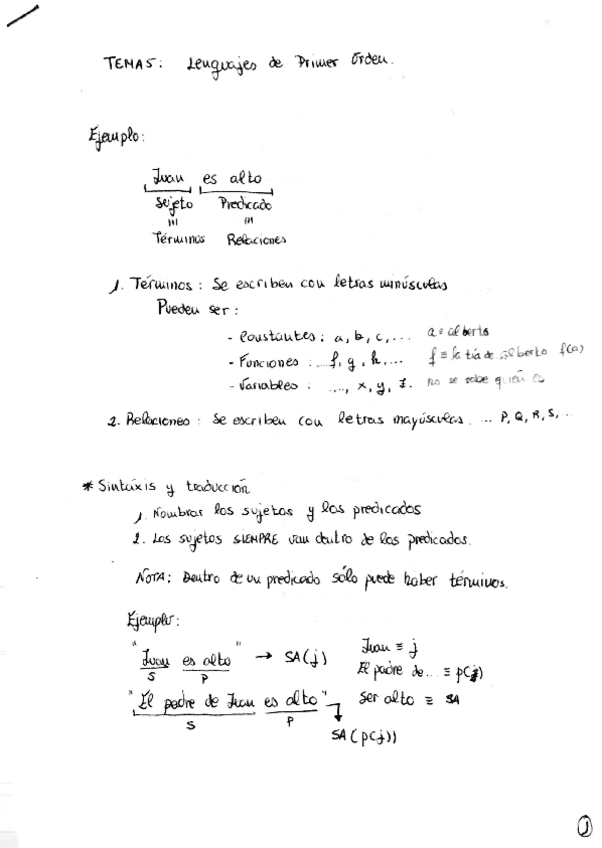 TEMA5: Lenguajes de Primer Orden.
Ejemplo:
Juan es alto
Sejeto Predicado
≡ ≡
Términos Relaciones
1. Términos: Se escriben con letras minúsculas
Pueden ser:
- Constantes: a, b, c, ... a ≡ alberto
- Funciones: ...f, g, h, ... f ≡ la tía de alberto f(a)
- Variables: ...., x, y, z. no se sabe quién es
2. Relaciones: Se escriben con letras mayúsculas. ... P, Q, R, S, ..
* Sintáxis y traducción
1. Nombrar los sujetos y los predicados
2. Los sujetos SIEMPRE van dentro de los predicados.
NOTA: Dentro de un predicado sólo puede haber términos.
Ejemplo:
"Juan es alto" → SA(j) Juan ≡ j
S P El padre de... ≡ p(j)
"El padre de Juan es alto" Ser alto ≡ SA
S P
SA(p(j))
1